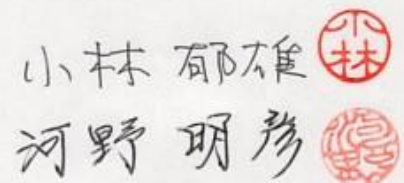 小林 郁雄 小林
河野 明彦